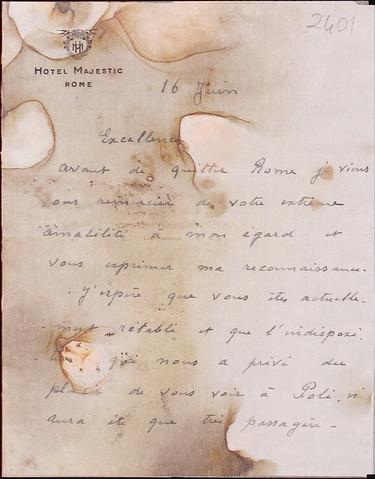 2401
HM
HOTEL MAJESTIC
ROME
16 Juin
Excellence
Avant de quitter Rome je viens
ous remercier de votre extrème
amabilité à mon égard et
vous exprimer ma reconnaissance.
J'espère que vous êtes actuelle-
ment rétabli et que l'indisposi-
qui nous a privé du
plai de vous voir à Poli, n'
aura été que très passagère -